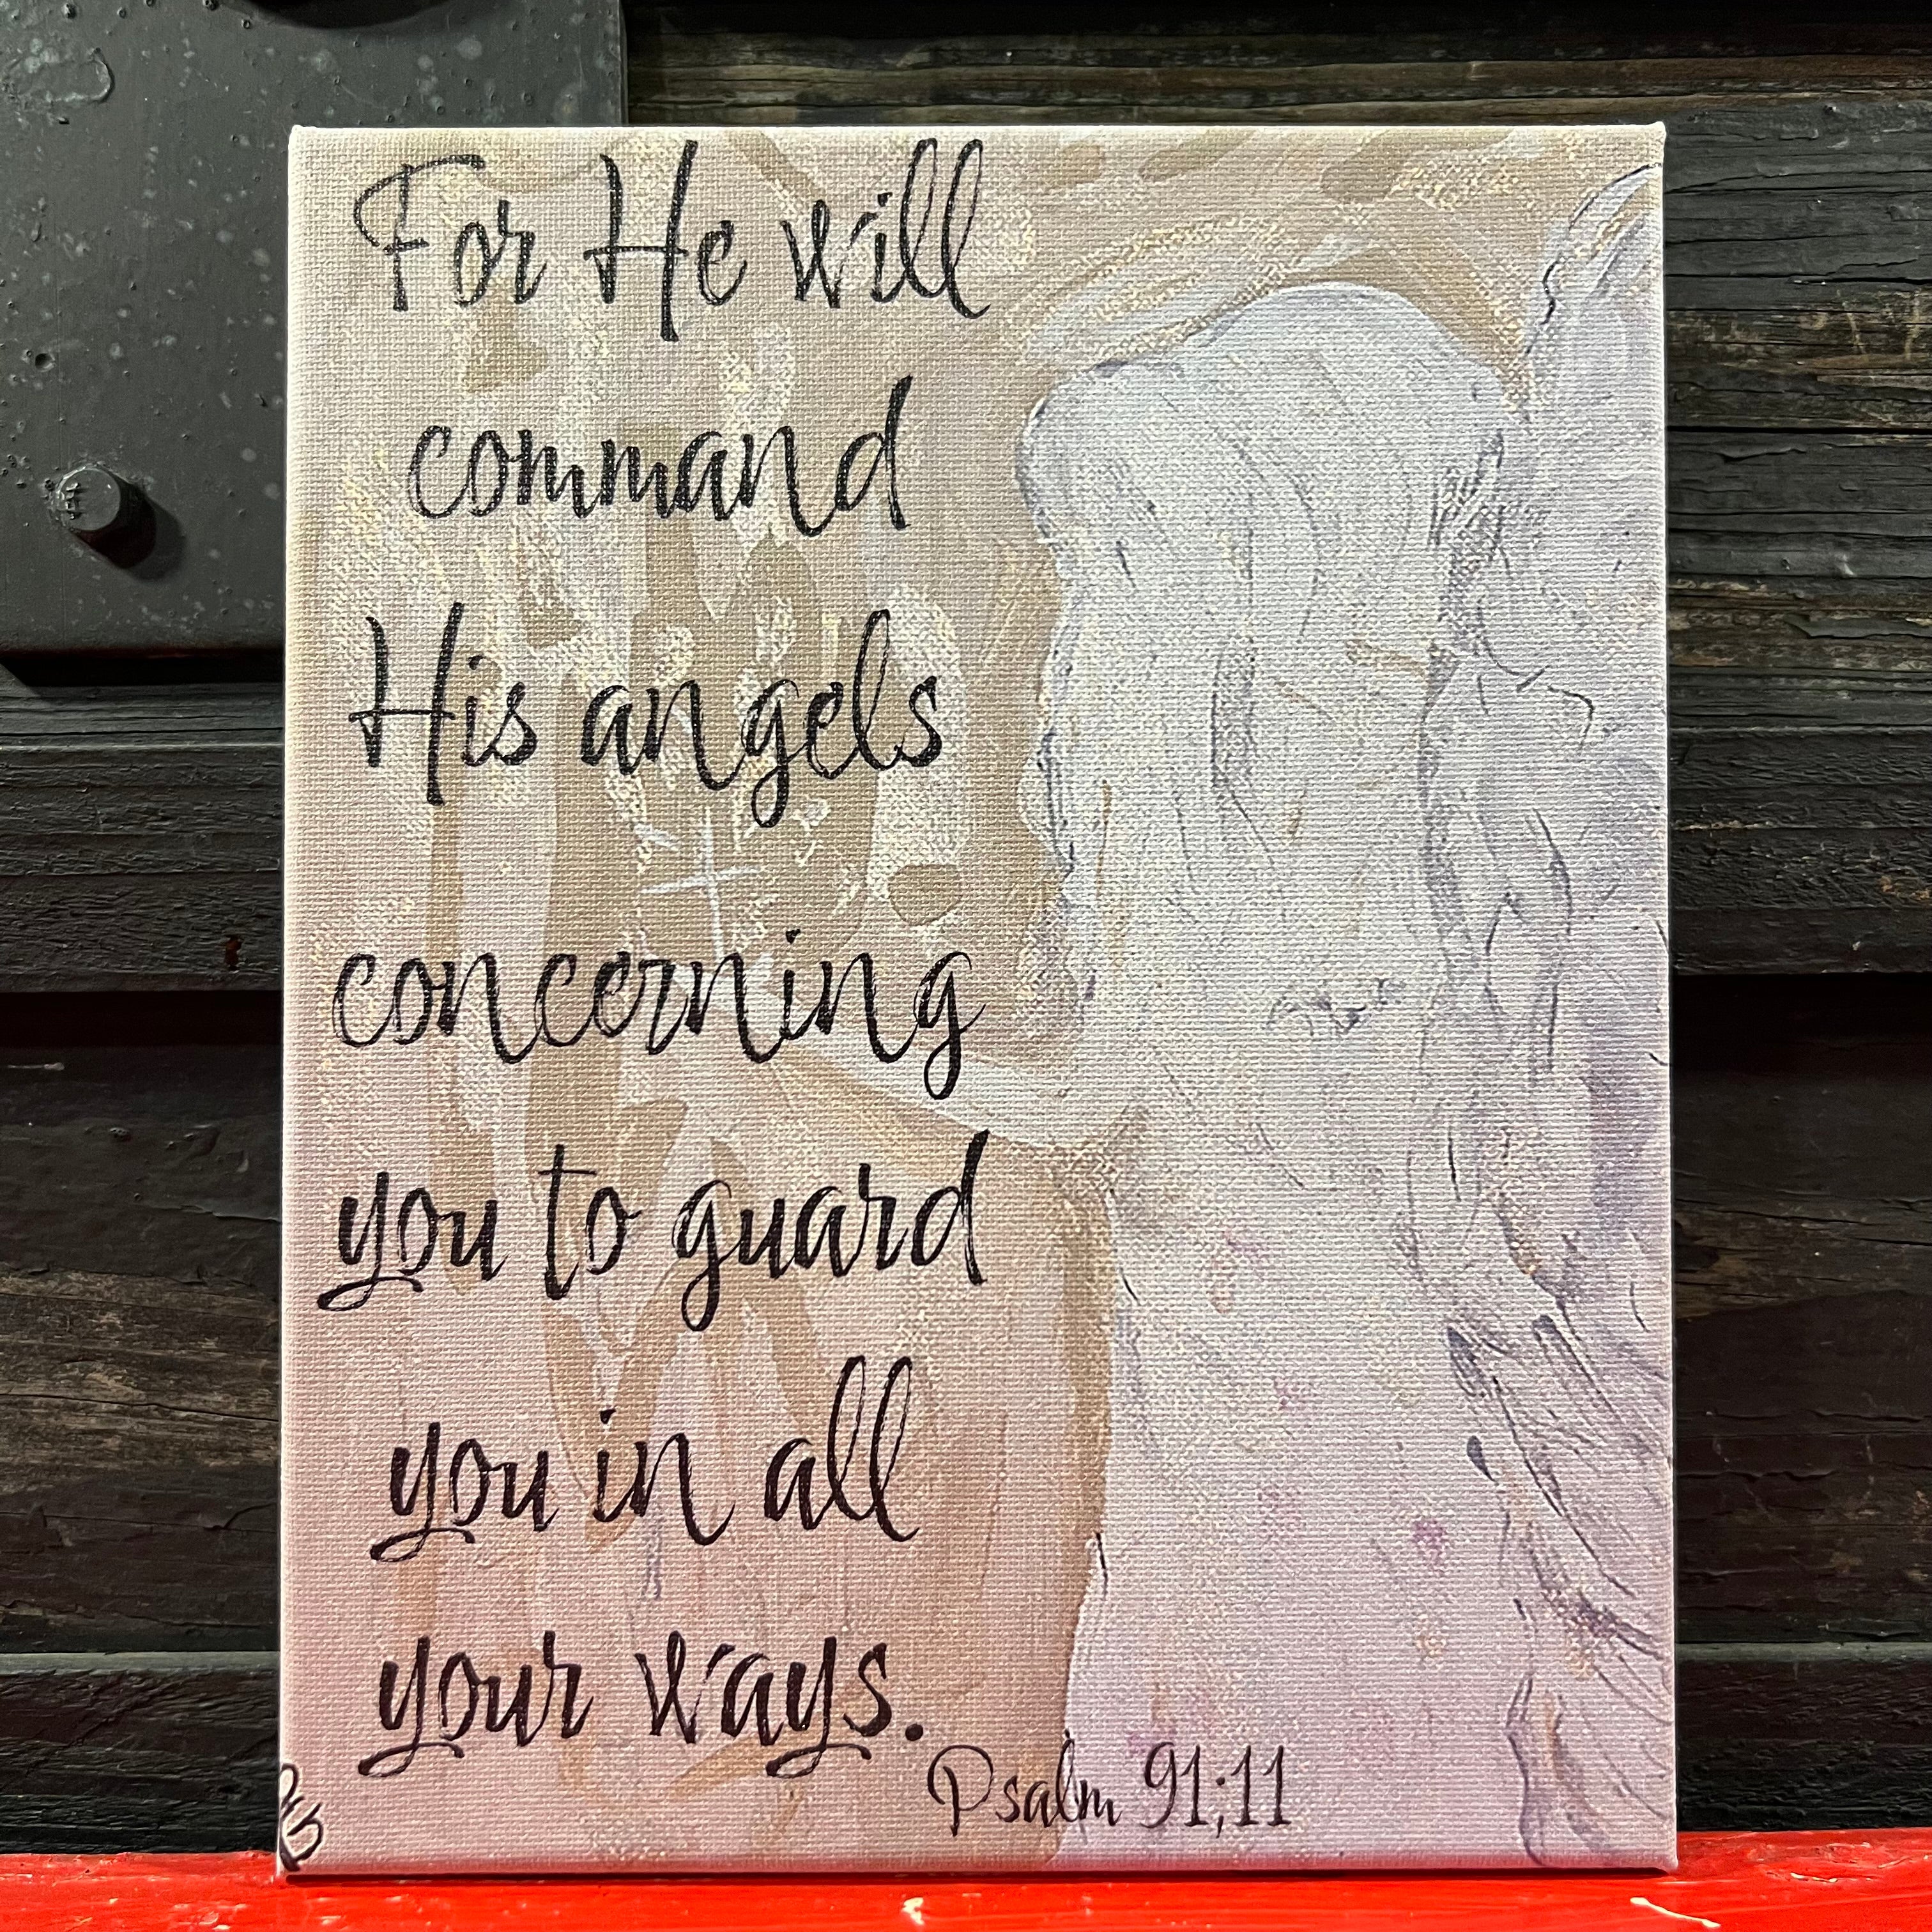 For He will
command
His angels
concerning
you to guard
you in all
your ways.
Psalm 91;11